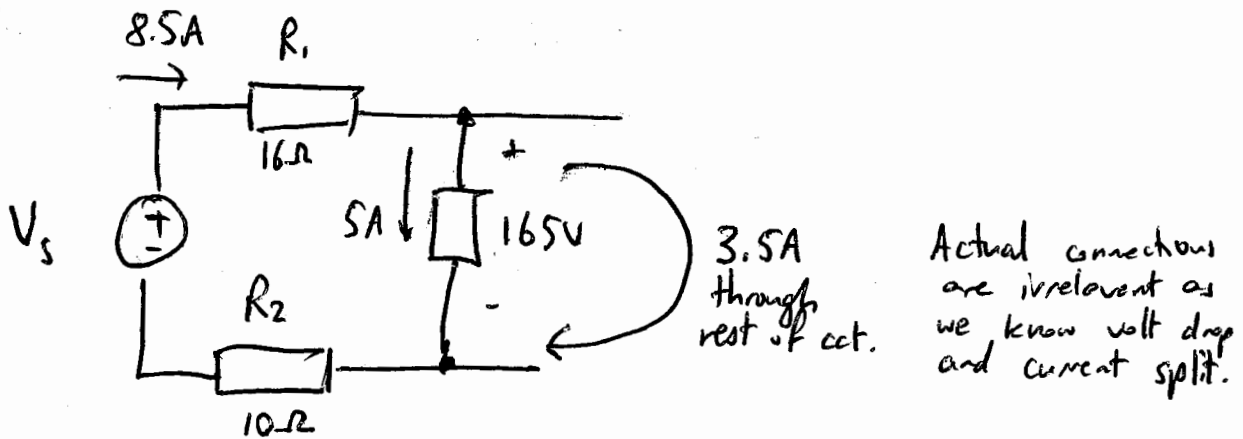 8.5A
R₁
16Ω
+
5A
165V
-
Vs
+
-
R2
10Ω
3.5A
through
rest of cct.
Actual connections
are irrelevant as
we know volt drop
and current split.